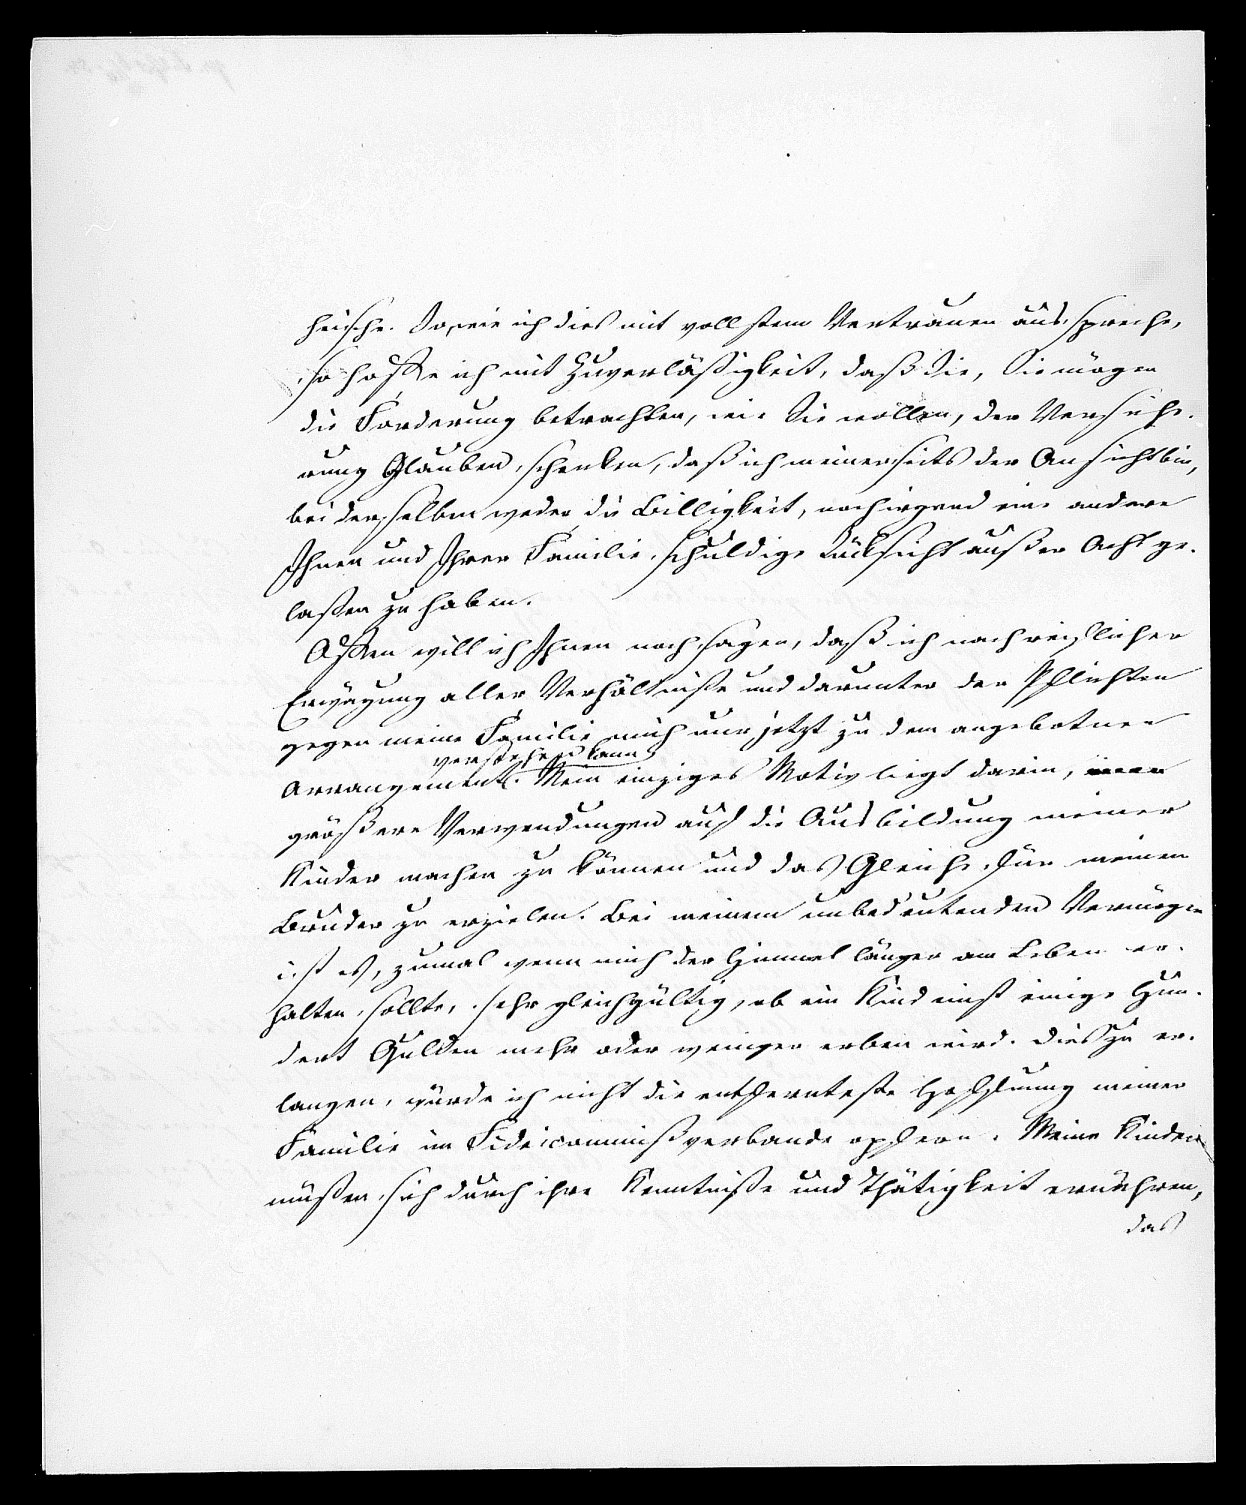 heische. Sowie ich dies mit vollstem Vertrauen ausspreche,
so hoffe ich mit Zuverläßigkeit, daß Sie, Sie mögen
die Forderung betrachten, wie Sie wollen, der Versiche-
rung Glauben schenken, daß ich meinerseits der Ansicht bin,
bei derselben weder die Billigkeit, noch irgend eine andere
Ihnen und Ihrer Familie schuldige Rücksicht außer Acht ge-
laßen zu haben.
Offen will ich Ihnen noch sagen, daß ich nach reiflicher
Erwägung aller Verhältniße und darunter der Pflichten
gegen meine Familie mich nur jetzt zu dem angebotnen
verstehen kann
Arrangement. Mein einziges Motiv liegt darin,
größere Verwendungen auf die Ausbildung meiner
Kinder machen zu können und das Gleiche für meinen
Bruder zu erzielen. Bei meinem unbedeutenden Vermögen
ist es, zumal wenn mich der Himmel länger am Leben er-
halten sollte, sehr gleichgültig, ob ein Kind einst einige Hun-
dert Gulden mehr oder weniger erben wird. Dies zu er-
langen, würde ich nicht die entfernteste Hoffnung meiner
Familie im Fideicommißverbande opfern. Meine Kinder
müßen sich durch ihre Kenntniße und Thätigkeit ernähren,
das